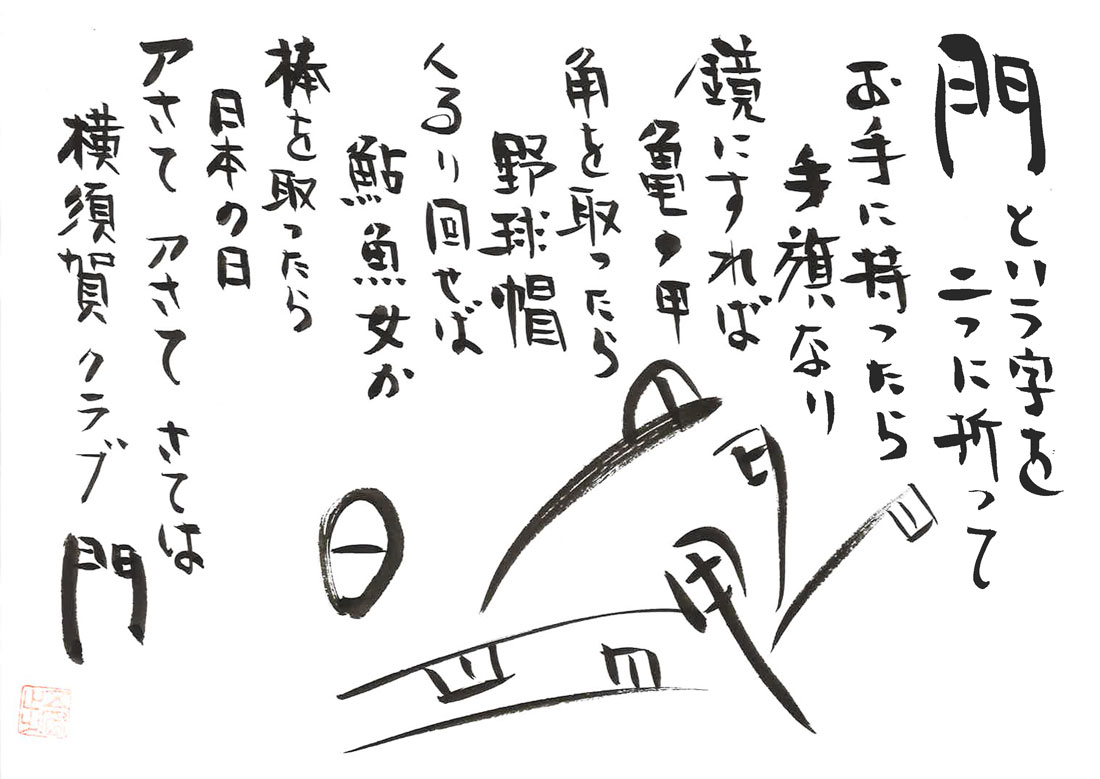 門という字を
二つに折って
お手に持ったら
手旗なり
鏡にすれば
亀の甲
角を取ったら
野球帽
くるり回せば
鮎魚女か
棒を取ったら
日本の日
アさて アさて さては
横須賀 クラブ 門